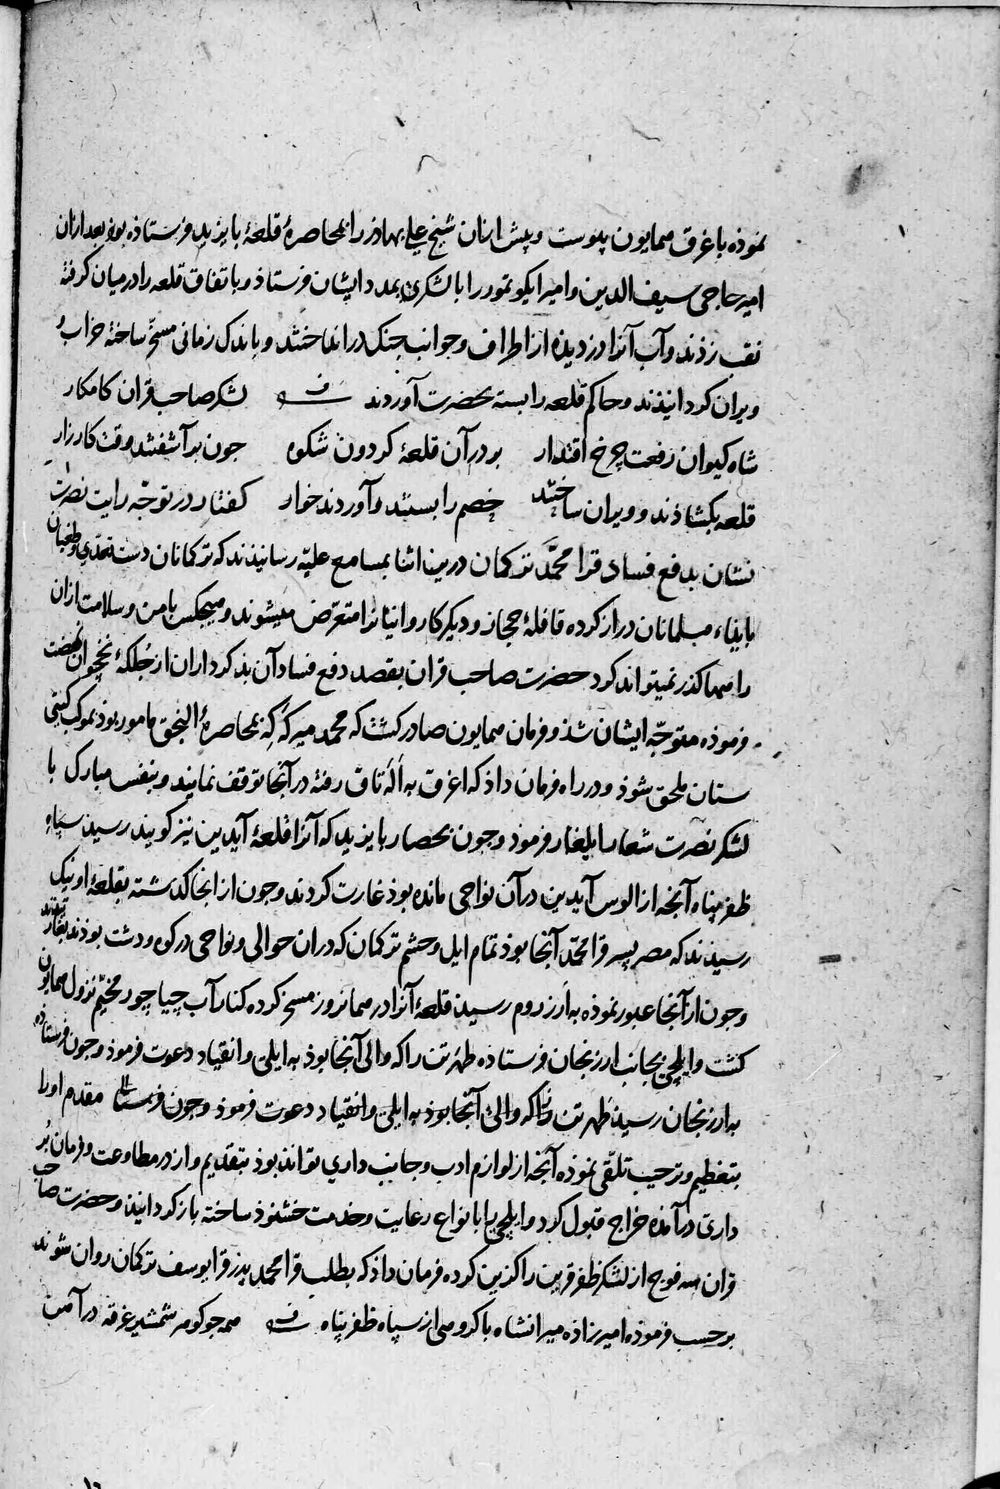 نموذه با غرق همایون پیوست و پیش ازان شیخ علی بهاذر را بمحاصرۀ قلعۀ بایزید فرستاذه بوذ بعد ازان
امیر حاجی سیف الدین و امیر ایکو تمور را با لشکری بمدد ایشان فرستاذ و باتفاق قلعه را درمیان کرفته
نقب زذند و آب آنرا دزدیذه از اطراف و جوانب جنک در انداختند و باندک زمانی مسخّر ساخته خراب و
ویران کردانیذند و حاکم قلعه را بسته بحضرت آوردند لشکر صاحب قران کامکار
شاه کیوان رفعت چرخ اقتدار بر در آن قلعۀ کردون شکوه جون بر آشفتند وقت کارزار
قلعه بکشاذند و ویران ساختند خصم را بستند و آوردند خوار کفتار در توجّه رایت نصرت
نشان بدفع فساد قرا محمّد ترکمان درین اثنا بمسامع علیّه رسانیذند که ترکمانان دست تعدّی و طغیان
بایذاء مسلمانان دراز کرده قافلۀ حجاز و دیکر کاروانیانرا متعرّض میشوند و هیجکس بامن و سلامت ازان
راهها کذر نمیتواند کرد حضرت صاحب قران بقصد دفع فساد آن بذکرداران از جلکۀ نخجوان نهضت
فرموذه متوجّه ایشان شذ و فرمان همایون صادر کشت که محمد میرکه که بمحاصرۀ النجق مامور بوذ بموکب کیتی
ستان ملحق شوذ و در راه فرمان داذ که اغرق به اله تاق رفته در آنجا توقف نمایند و بنفس مبارک با
لشکر نصرت شعار ایلغار فرموذ و جون بحصار بایزید که آنرا قلعۀ آیدین نیز کویند رسید سپاه
ظفرپناه آنجه از الوس آیدین در آن نواحی مانده بوذ غارت کردند و جون از انجا کذشته بقلعۀ اونیک
رسیذند که مصر پسر قرا محمّد آنجا بوذ تمام ایل و حشم ترکمان که دران حوالی و نواحی در کوه و دشت بوذند بغارتیدند
و جون از آنجا عبور نموذه به ارزروم رسید قلعۀ آنرا در همانروز مسخر کرده کنار آب چپاچور مخیّم نزول همایون
کشت و ایلچی بجانب ارزنجان فرستاذه طهرتن را که والی آنجا بوذ به ایلی و انقیاد دعوت فرموذ و جون فرستاذه
به ارزنجان رسید طهرتن را که والی آنجا بوذ به ایلی و انقیاد دعوت فرموذ و جون مقدم او را
بتعظیم و ترحیب تلقّی نموذه آنجه از لوازم ادب و جانب داری تواند بوذ بتقدیم و از در مطاوعت و فرمان بر
داری درآمذه خراج قبول کرد و ایلچی را بانواع رعایت و خدمت خشنوذ ساخته باز کردانیذ و حضرت صاحب
قران سه فوج از لشکر ظفر قرین را کزین کرده فرمان داذ که بطلب قرا محمد پدر قرا یوسف ترکمان روان شوند
برحسب فرموذه امیرزاذه میرانشاه با کروهی از سپاه ظفرپناه همه جو کوهر شمشیر غرقه در آهن